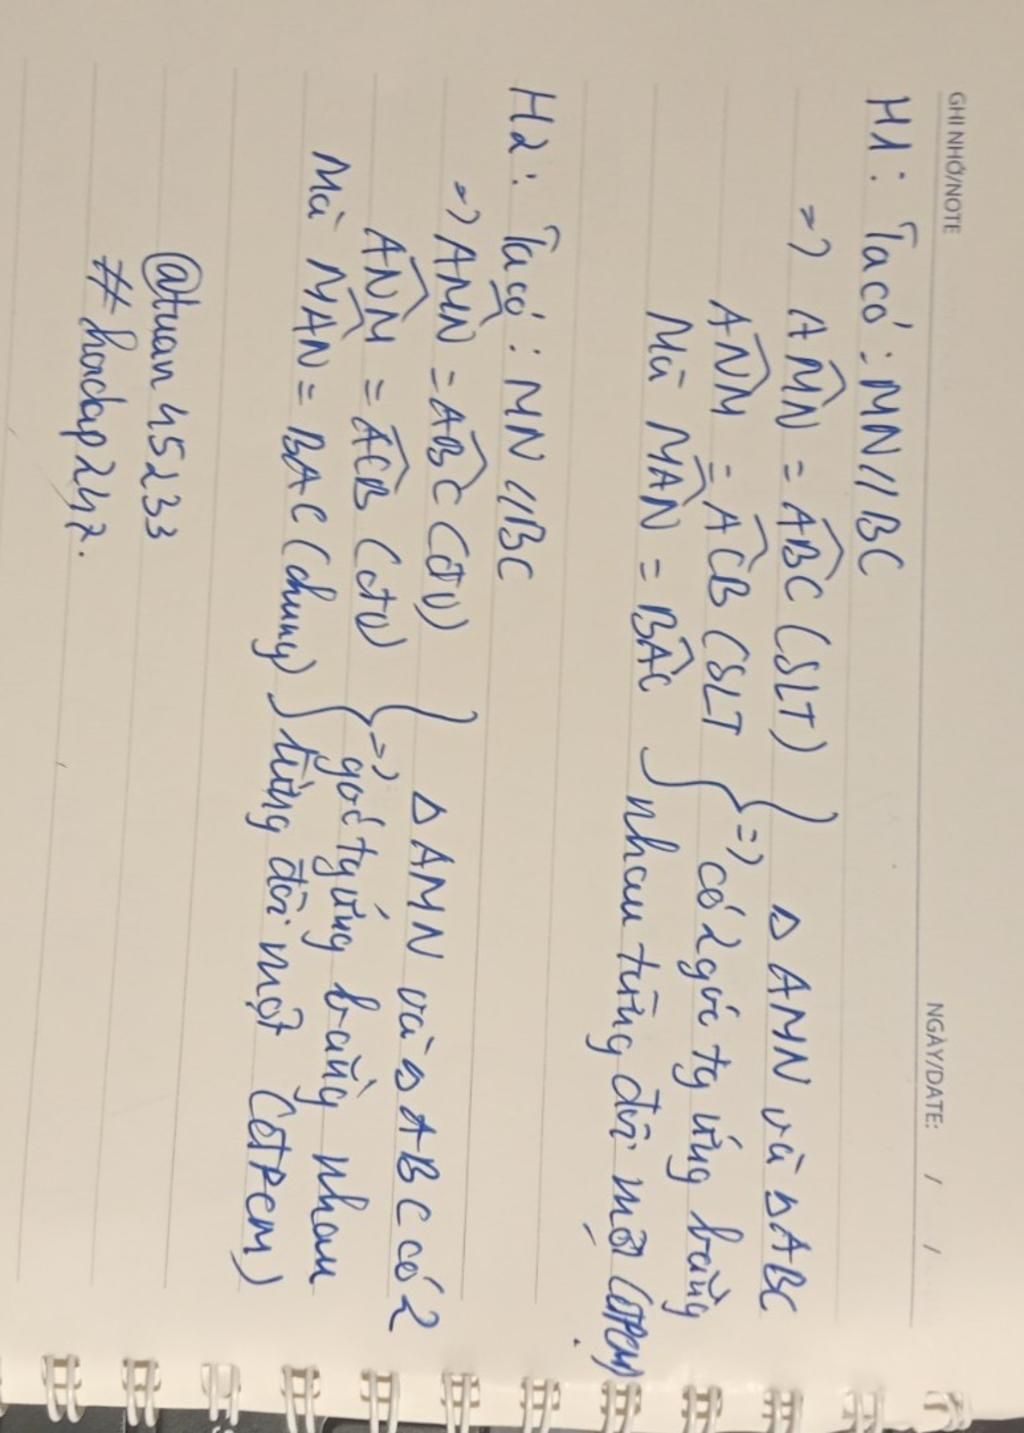 GHI NHỚ/NOTE
NGÀY/DATE: / /
H1: Ta có: MN//BC
=> AM̂N = AB̂C (SLT)
AN̂M = AĈB (SLT
Mà MÂN = BÂC
} => Δ AMN và Δ ABC
có 2 góc tg ứng bằng
nhau từng đôi một (ĐPCM)
H2: Ta có: MN//BC
=> AM̂N = AB̂C (CTU)
AN̂M = AĈB (CTU)
Mà MÂN = BAC (chung)
} => Δ AMN và Δ ABC có 2
góc tg ứng bằng nhau
từng đôi một (ĐPCM)
@tuan45233
#hoidap247.